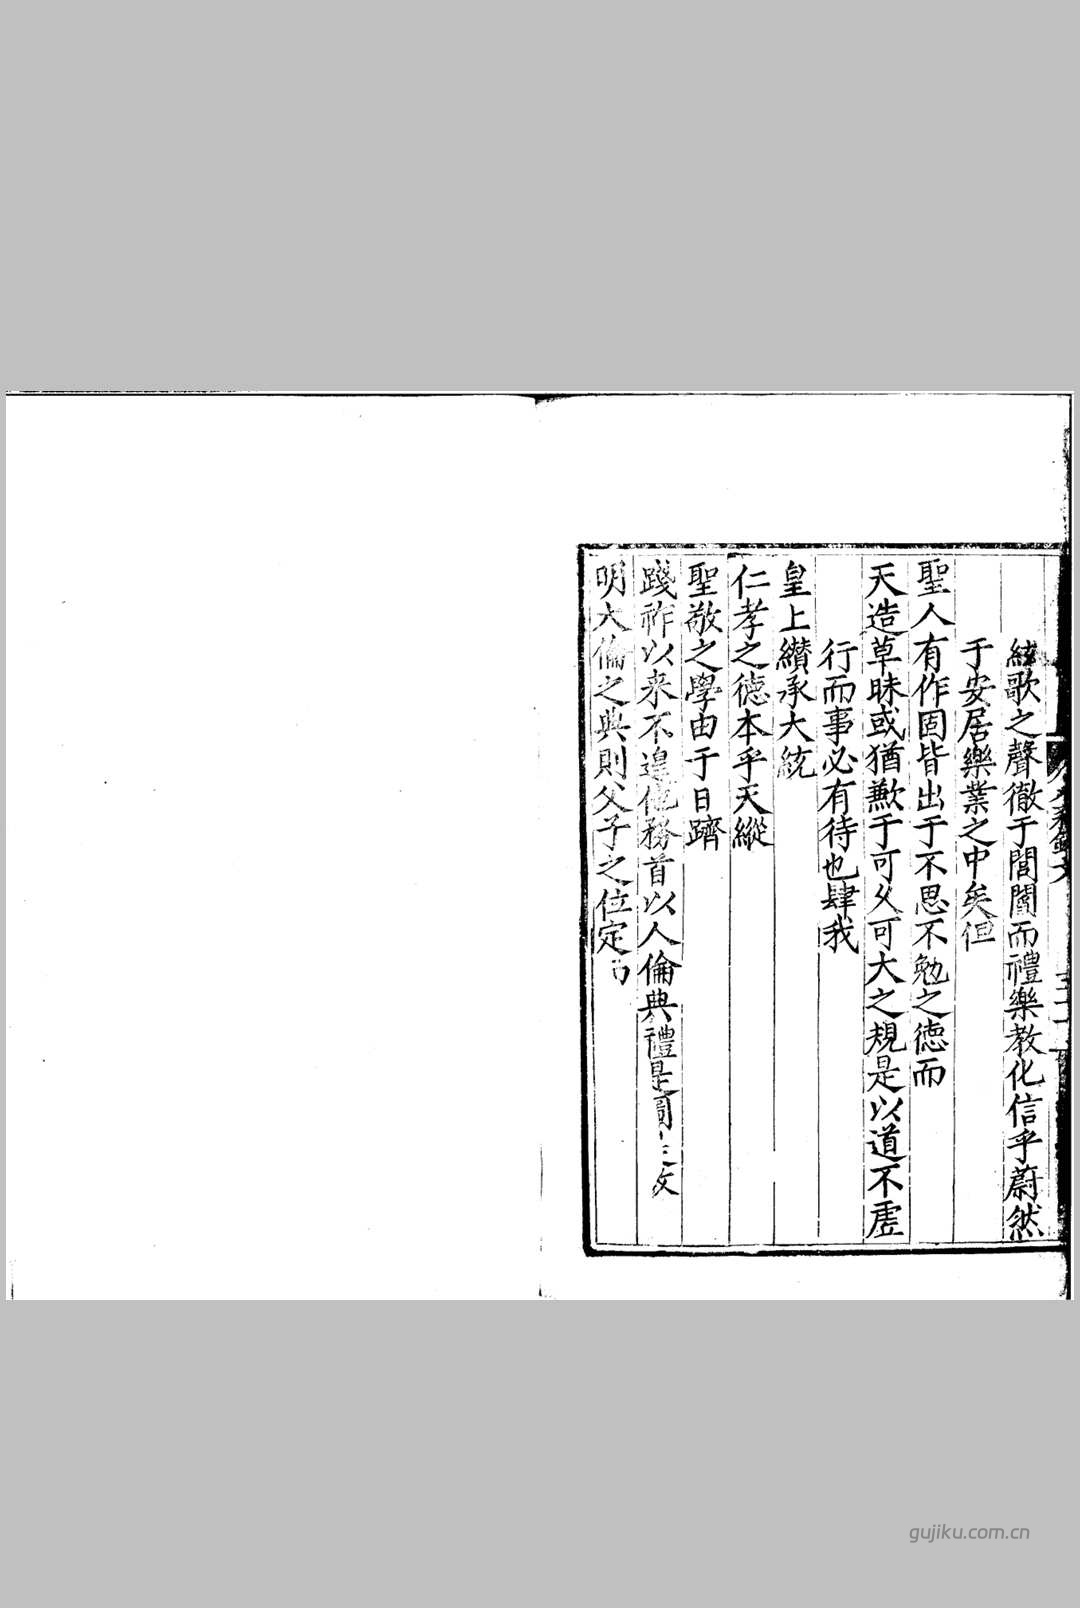 絃歌之聲徹于閭閻而禮樂教化信乎蔚然
于安居樂業之中矣但
聖人有作固皆出于不思不勉之德而
天造草昧或猶歉于可久可大之規是以道不虛
行而事必有待也肆我
皇上纘承大統
仁孝之德本乎天縱
聖敬之學由于日躋
踐祚以来不遑他務首以人倫典禮是圖
明大倫之典則父子之位定
gujiku.com.cn